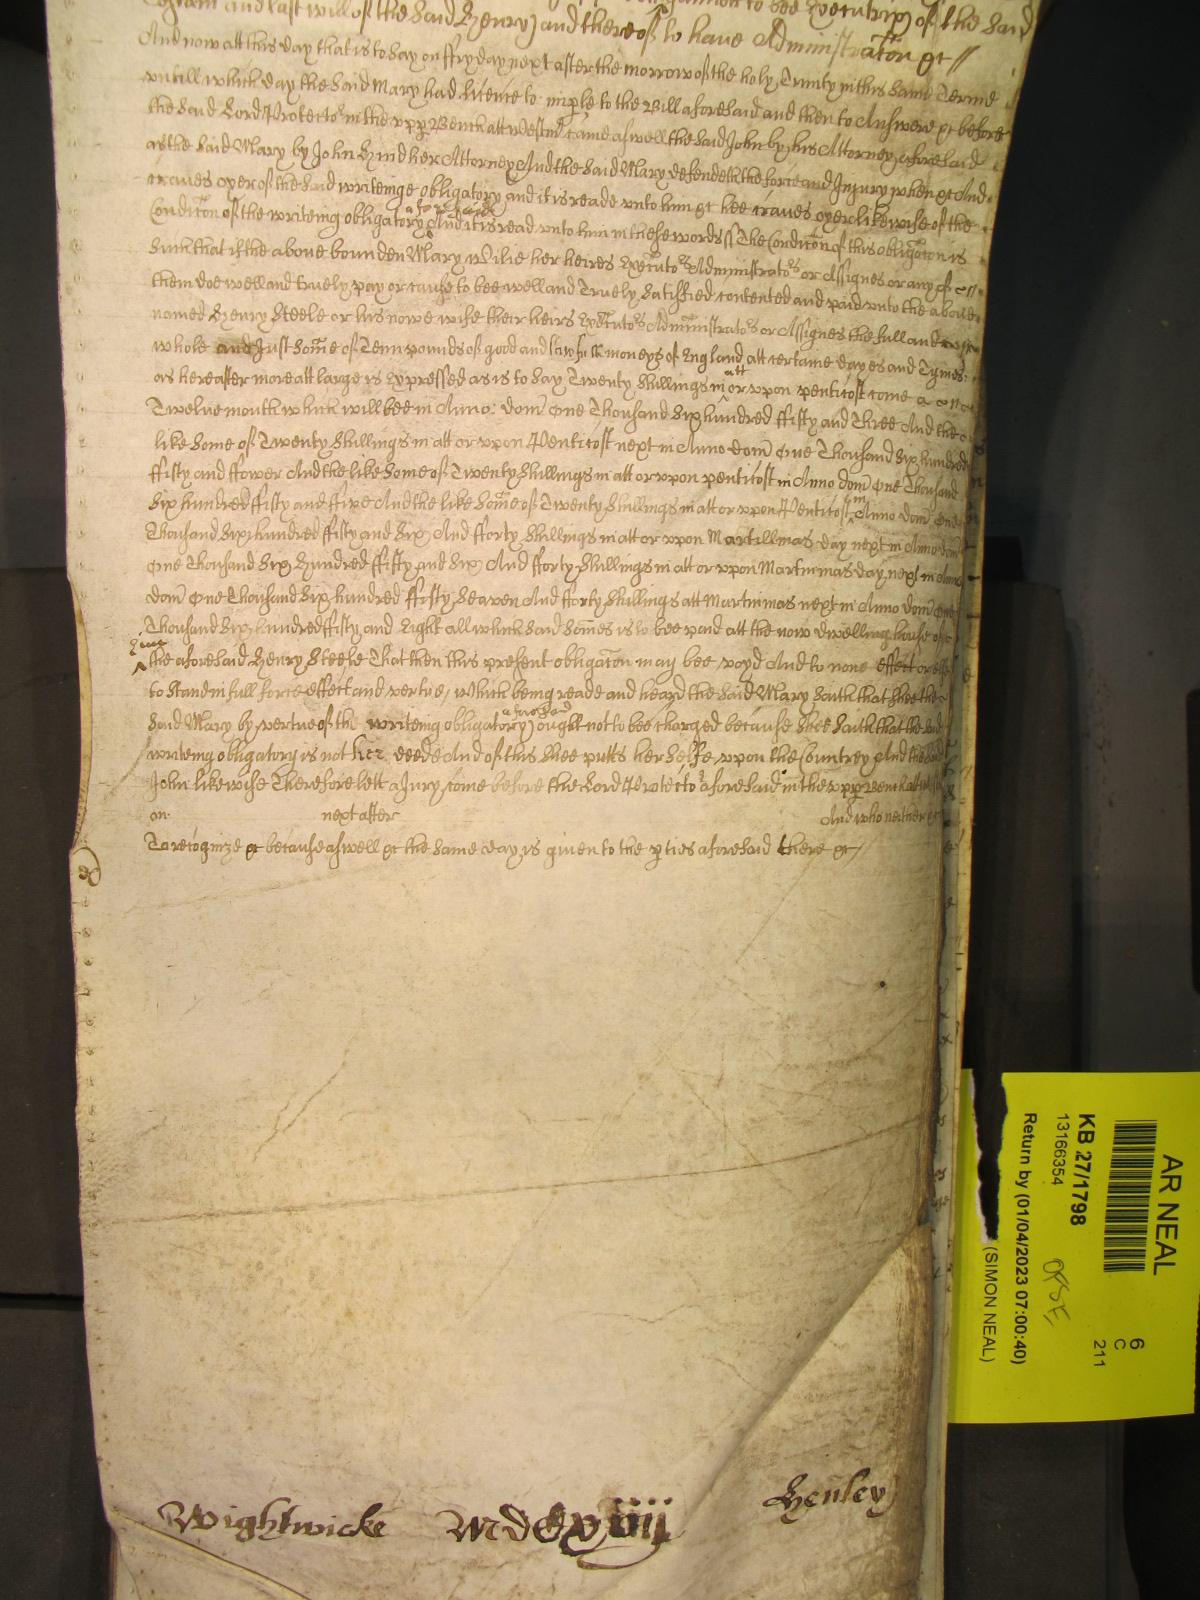 and last will of the said Henry and thereof to have Administrac̄on &c //
And now att this day that is to say on ffryday next after the morrow of the holy Trinity in this same Terme
untill which day the said Mary had licence to imple to the Bill aforesaid and then to Answere &c before
the said Lord Protector in the upper Bench att Westm̄ came aswell the said John by his Attorney aforesaid
as the said Mary by John Hind her Attorney And the said Mary defendeth the force and Injury when &c And
craves oyer of the said writeinge obligatory and it is reade unto him &c hee craves oyer likewise of the
Condic̄on of the writeing obligatory aforesaid And it is read unto him in these words ss The Condic̄on of this obligac̄on is
such that if the above bounden Mary Wilie her heires Executors Administrators or Assignes or any of
them doe well and truely pay or cause to bee well and Truely satisfied contented and paid unto the above
named Henry Steele or his nowe wife their heirs Executors Administrators or Assignes the full and
whole and Just som̄e of Tenn pounds of good and lawfull moneys of England att certaine dayes and Tymes
as hereafter more att large is Expressed as is to say Twenty shillings in att or upon pentitost come a
Twelve month which will bee in Anno: dom̄ One Thousand Six hundred ffifty and Three And the
like some of Twenty shillings in att or upon Pentitost next in Anno dom̄ One Thousand Six hundred
ffifty and ffower And the like some of Twenty shillings in att or upon pentitost in Anno dom̄ One Thousand
Six hundred ffifty and ffive And the like som̄e of Twenty shillings in att or upon Pentitost in Anno dom̄ One
Thousand Six hundred ffifty and Six And fforty shillings in att or upon Martillmas day next in Anno dom̄
One Thousand Six Hundred ffifty and Six And fforty shillings in att or upon Martinmas day next in Anno
dom̄ One Thousand Six hundred ffifty Seaven And fforty shillings att Martinmas next in Anno dom̄ One
Thousand Six hundred ffifty and Eight all which said som̄es is to bee paid att the now dwelling house of
the aforesaid Henry Steele That then this present obligac̄on may bee voyd And to none effect or els
to stand in full force effect and vertue, Which being reade and heard the said Mary saith that shee the
said Mary by vertue of the writeing obligatory aforesaid ought not to bee charged because shee saith that the said
writeing obligatory is not her deede And of this shee putts her selfe upon the Countrey And the said
John likewise Therefore lett a Jury come before the Lord Protector aforesaid in the upper Bench att
on next after And who neither &c
To recognize &c because aswell &c the same day is given to the pties aforesaid there &c
Wightwicke Mdccxviij Henley
AR NEAL
KB 27/1798
13166354
Return by (01/04/2023 07:00:40)
(SIMON NEAL)
6
C
211